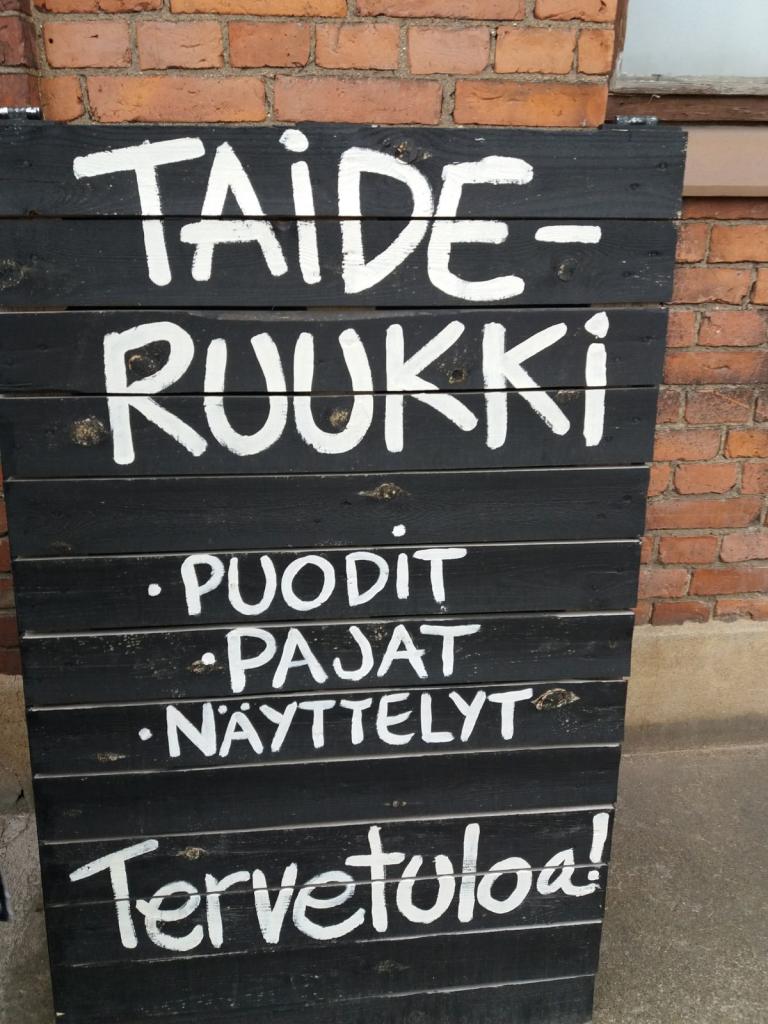 TAIDE-
RUUKKi
· PUODiT
· PAJAT
· NÄYTTELYT
Tervetuloa!